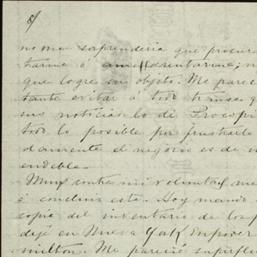 8/
no me sorprenderia que procura
tarme ó amedrentarme; n
que logre su objeto. Me parec
tante evitar á todo trance q
sus noticias lo di Procopi
todo lo posible por frustrarle
damente el negocio es de
endeble.
Muy contra mi voluntad me
ó concluir esta. Hoy mando
copia del inventario de los
dejé en Nueva York en poder
milton. Me pareció superflu